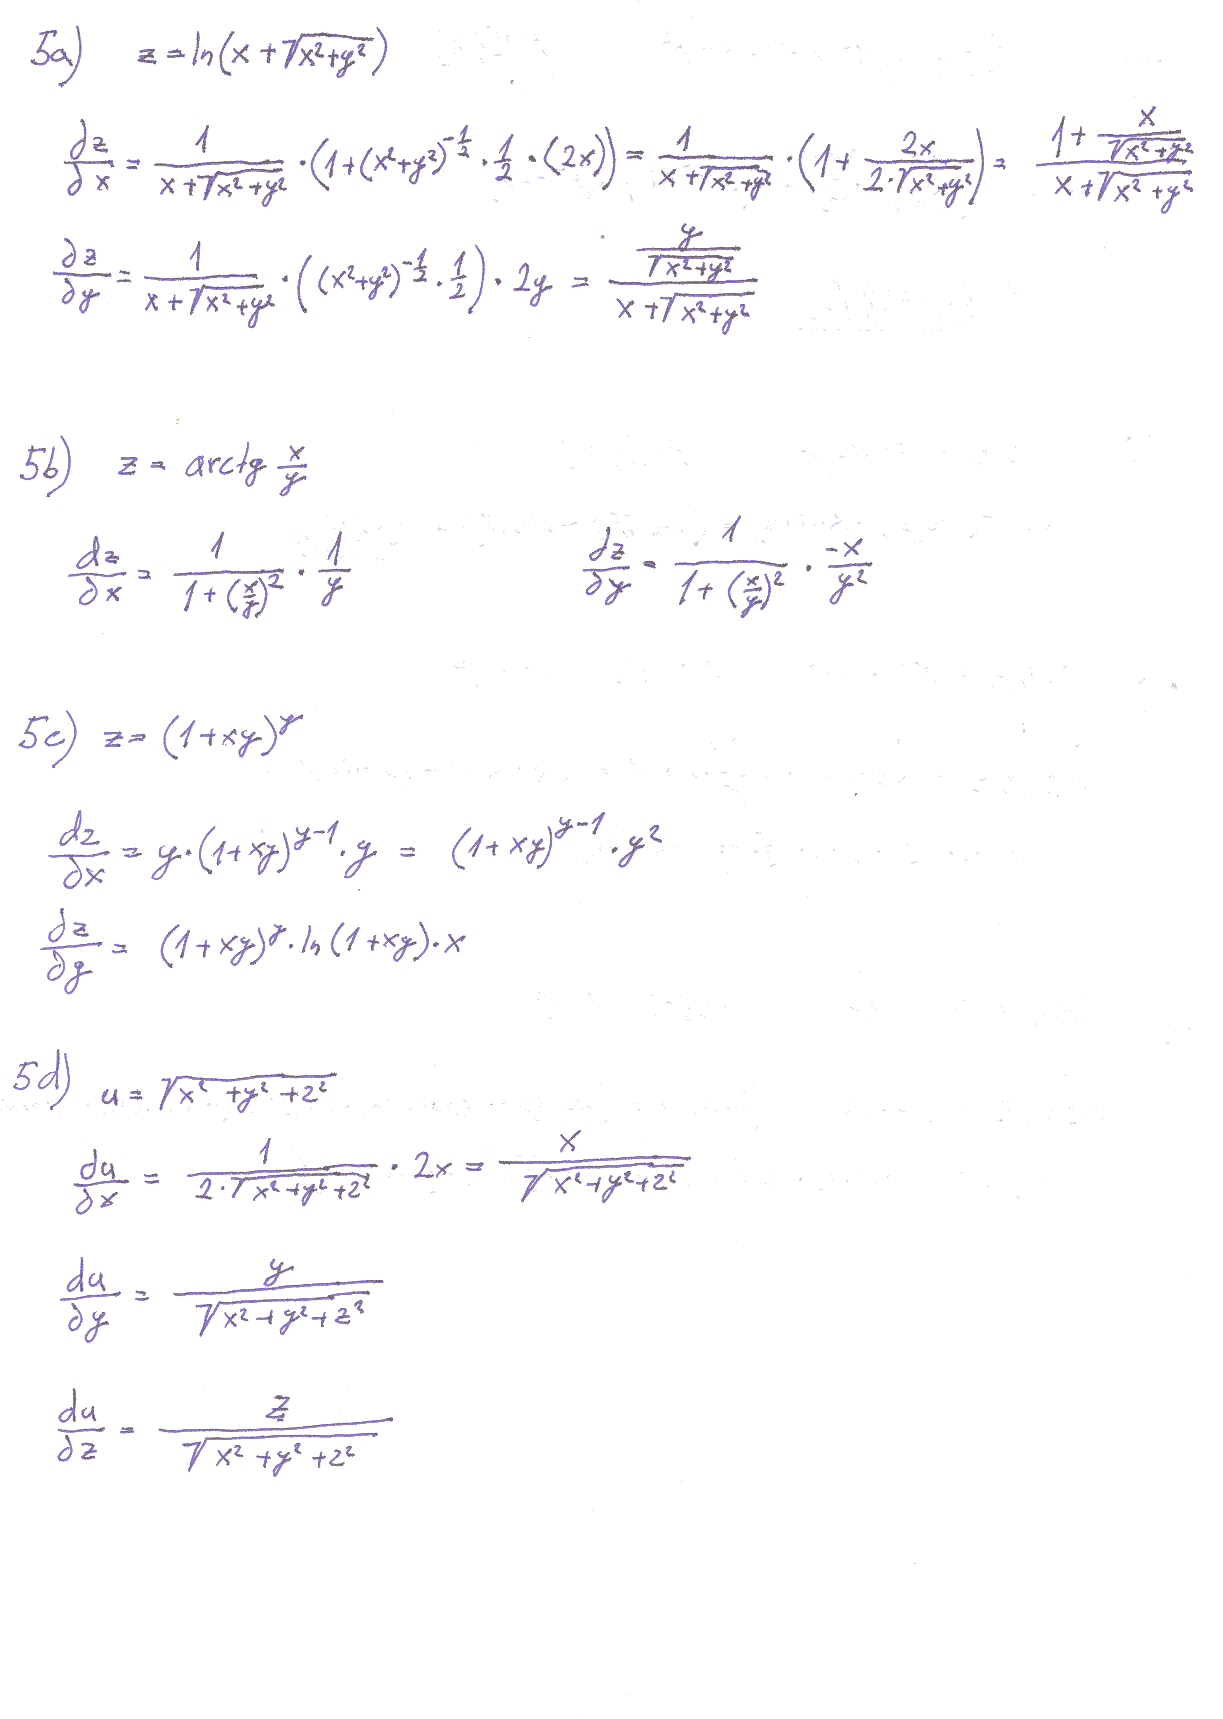 5a) z = ln(x + √(x²+y²))
∂z/∂x = 1/(x+√(x²+y²)) · (1+(x²+y²)^(-1/2) · 1/2 · (2x)) = 1/(x+√(x²+y²)) · (1 + 2x/(2·√(x²+y²))) = (1 + x/√(x²+y²))/(x+√(x²+y²))
∂z/∂y = 1/(x+√(x²+y²)) · ((x²+y²)^(-1/2) · 1/2) · 2y = (y/√(x²+y²))/(x+√(x²+y²))
5b) z = arctg x/y
dz/∂x = 1/(1+(x/y)²) · 1/y     ∂z/∂y = 1/(1+(x/y)²) · -x/y²
5c) z = (1+xy)^y
dz/∂x = y·(1+xy)^(y-1) · y = (1+xy)^(y-1) · y²
∂z/∂y = (1+xy)^y · ln(1+xy) · x
5d) u = √(x²+y²+z²)
du/∂x = 1/(2·√(x²+y²+z²)) · 2x = x/√(x²+y²+z²)
du/∂y = y/√(x²+y²+z²)
du/∂z = z/√(x²+y²+z²)